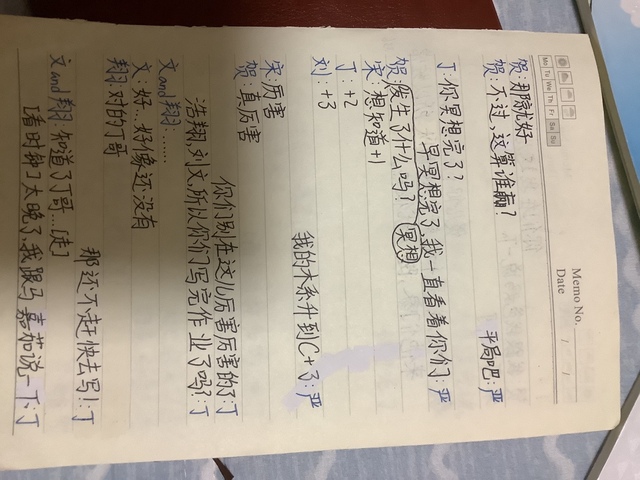 Memo No.
Date / /
Mo Tu We Th Fr Sa Su
贺:那就好
贺:不过,这算谁赢?
平局吧:严
丁:你冥想完了?
早冥想完了,我一直看着你们:严
贺:发生了什么吗? 冥想
宋:想知道+1
丁:+2
刘:+3
我的木系升到C+3:严
宋:厉害
贺:真厉害
你们别在这儿厉害厉害的了:丁
浩翔,刘文,所以你们写完作业了吗?:丁
文and翔:……
文:好…好像还没有
翔:对的丁哥
那还不赶快去写!:丁
文and翔:知道了丁哥…[走]
[看时钟]太晚了,我跟马嘉茄说一下:丁